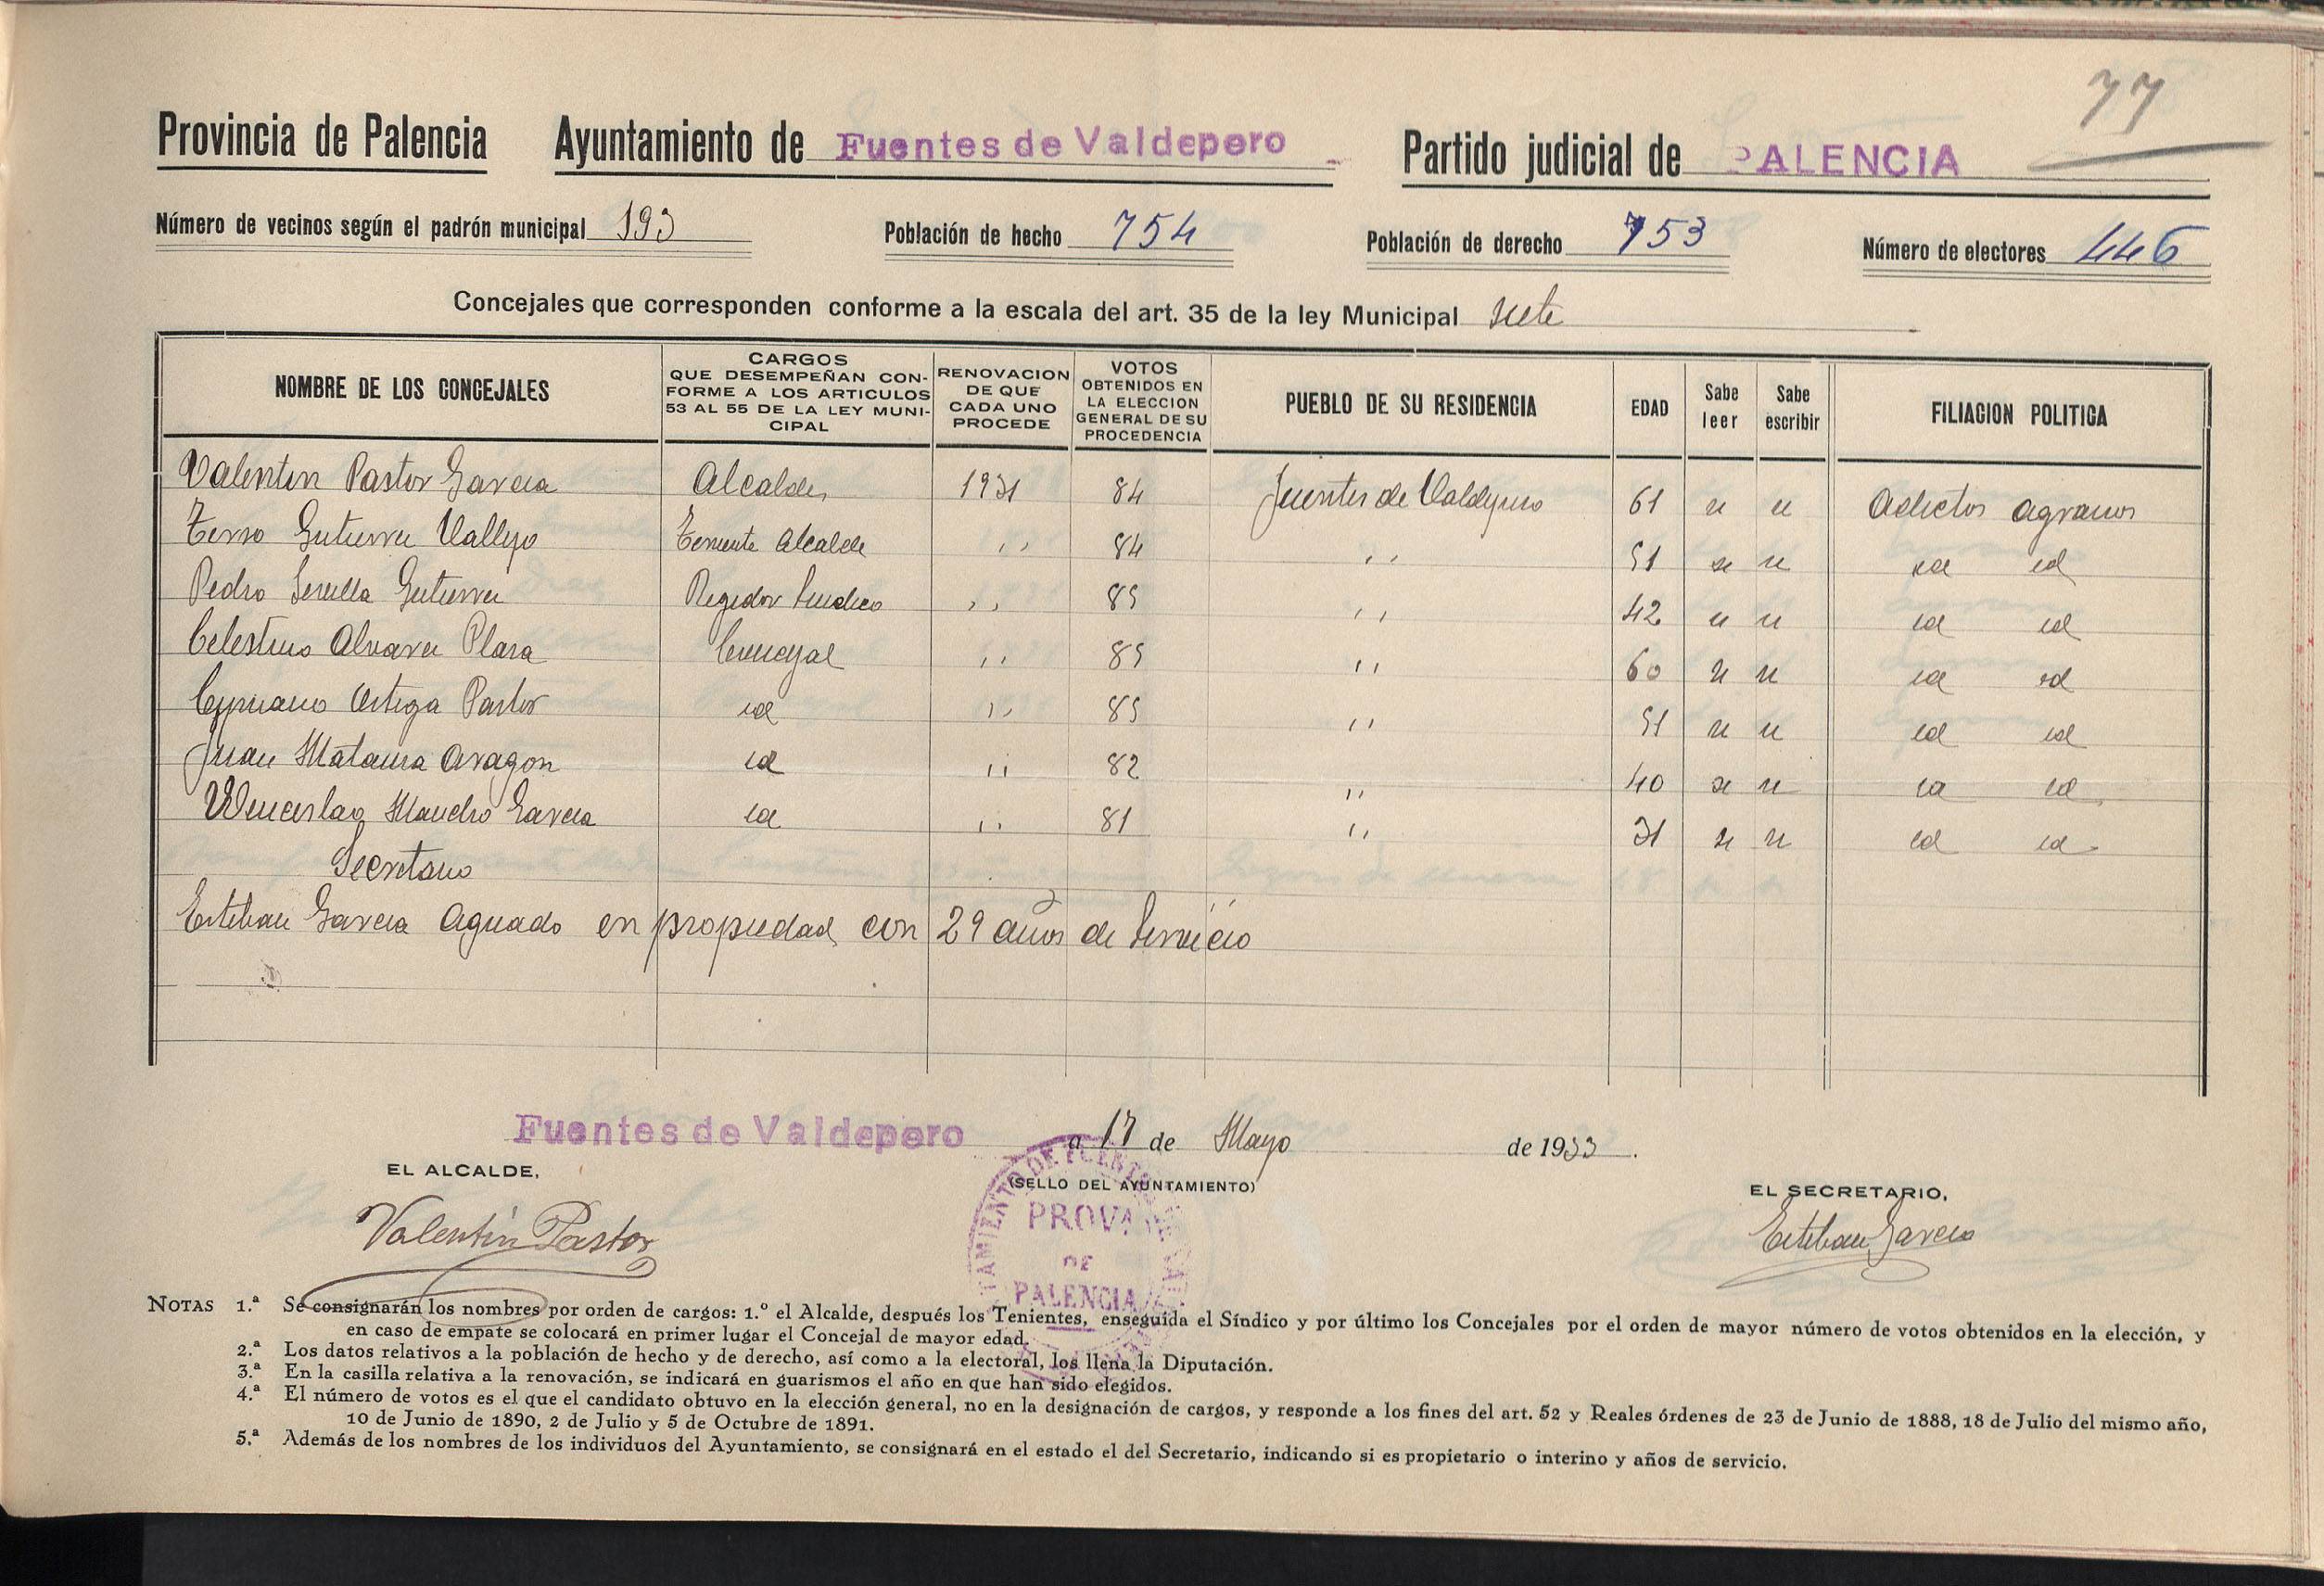 77
Provincia de Palencia Ayuntamiento de Fuentes de Valdepero Partido judicial de PALENCIA
Número de vecinos según el padrón municipal 193 Población de hecho 754 Población de derecho 753 Número de electores 446
Concejales que corresponden conforme a la escala del art. 35 de la ley Municipal siete
NOMBRE DE LOS CONCEJALES CARGOS QUE DESEMPEÑAN CONFORME A LOS ARTICULOS 53 AL 55 DE LA LEY MUNICIPAL RENOVACION DE QUE CADA UNO PROCEDE VOTOS OBTENIDOS EN LA ELECCION GENERAL DE SU PROCEDENCIA PUEBLO DE SU RESIDENCIA EDAD Sabe leer Sabe escribir FILIACION POLITICA
Valentin Pastor Garcia Alcalde 1931 84 Fuentes de Valdepero 61 si si Adictos agrarios
Tirso Gutierrez Vallejo Teniente Alcalde ,, 84 ,, 51 si si id id
Pedro Serulla Gutierrez Regidor Sindico ,, 85 ,, 42 si si id id
Celestino Alvarez Plaza Concejal ,, 85 ,, 60 si si id id
Cipriano Ortega Pastor id ,, 85 ,, 51 si si id id
Juan Mataura Aragon id ,, 82 ,, 40 si si id id
Wenceslao Mancho Garcia id ,, 81 ,, 31 si si id id
Secretario
Esteban Garcia Aguado en propiedad con 29 años de Servicio
Fuentes de Valdepero a 17 de Mayo de 1933.
EL ALCALDE, (SELLO DEL AYUNTAMIENTO) EL SECRETARIO,
PROVA DE PALENCIA
Valentín Pastor Esteban Garcia
NOTAS 1.ª Se consignarán los nombres por orden de cargos: 1.º el Alcalde, después los Tenientes, enseguida el Síndico y por último los Concejales por el orden de mayor número de votos obtenidos en la elección, y
en caso de empate se colocará en primer lugar el Concejal de mayor edad.
2.ª Los datos relativos a la población de hecho y de derecho, así como a la electoral, los llena la Diputación.
3.ª En la casilla relativa a la renovación, se indicará en guarismos el año en que han sido elegidos.
4.ª El número de votos es el que el candidato obtuvo en la elección general, no en la designación de cargos, y responde a los fines del art. 52 y Reales órdenes de 23 de Junio de 1888, 18 de Julio del mismo año,
10 de Junio de 1890, 2 de Julio y 5 de Octubre de 1891.
5.ª Además de los nombres de los individuos del Ayuntamiento, se consignará en el estado el del Secretario, indicando si es propietario o interino y años de servicio.